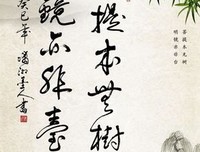 菩提本无树
明镜亦非台
提本無樹
鏡亦非臺
癸巳年